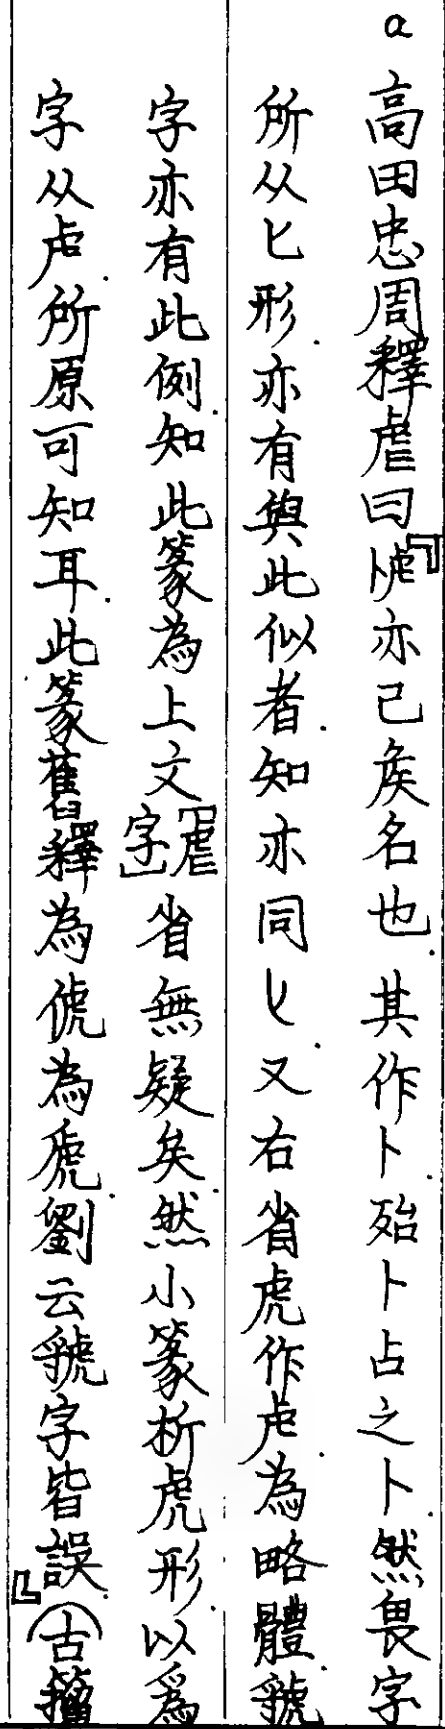 a 高田忠周釋虐曰『䖈亦己矦名也．其作卜殆卜占之卜．然畏字
所从匕形．亦有與此似者．知亦同𠤎．又右省虎作虍．為略體．虢
字亦有此例．知此篆為上文［虐字］省無疑矣．然小篆析虎形．以為
字从虍．所原可知耳．此篆舊釋為俿為虒．劉云虢字皆誤．』（古籀